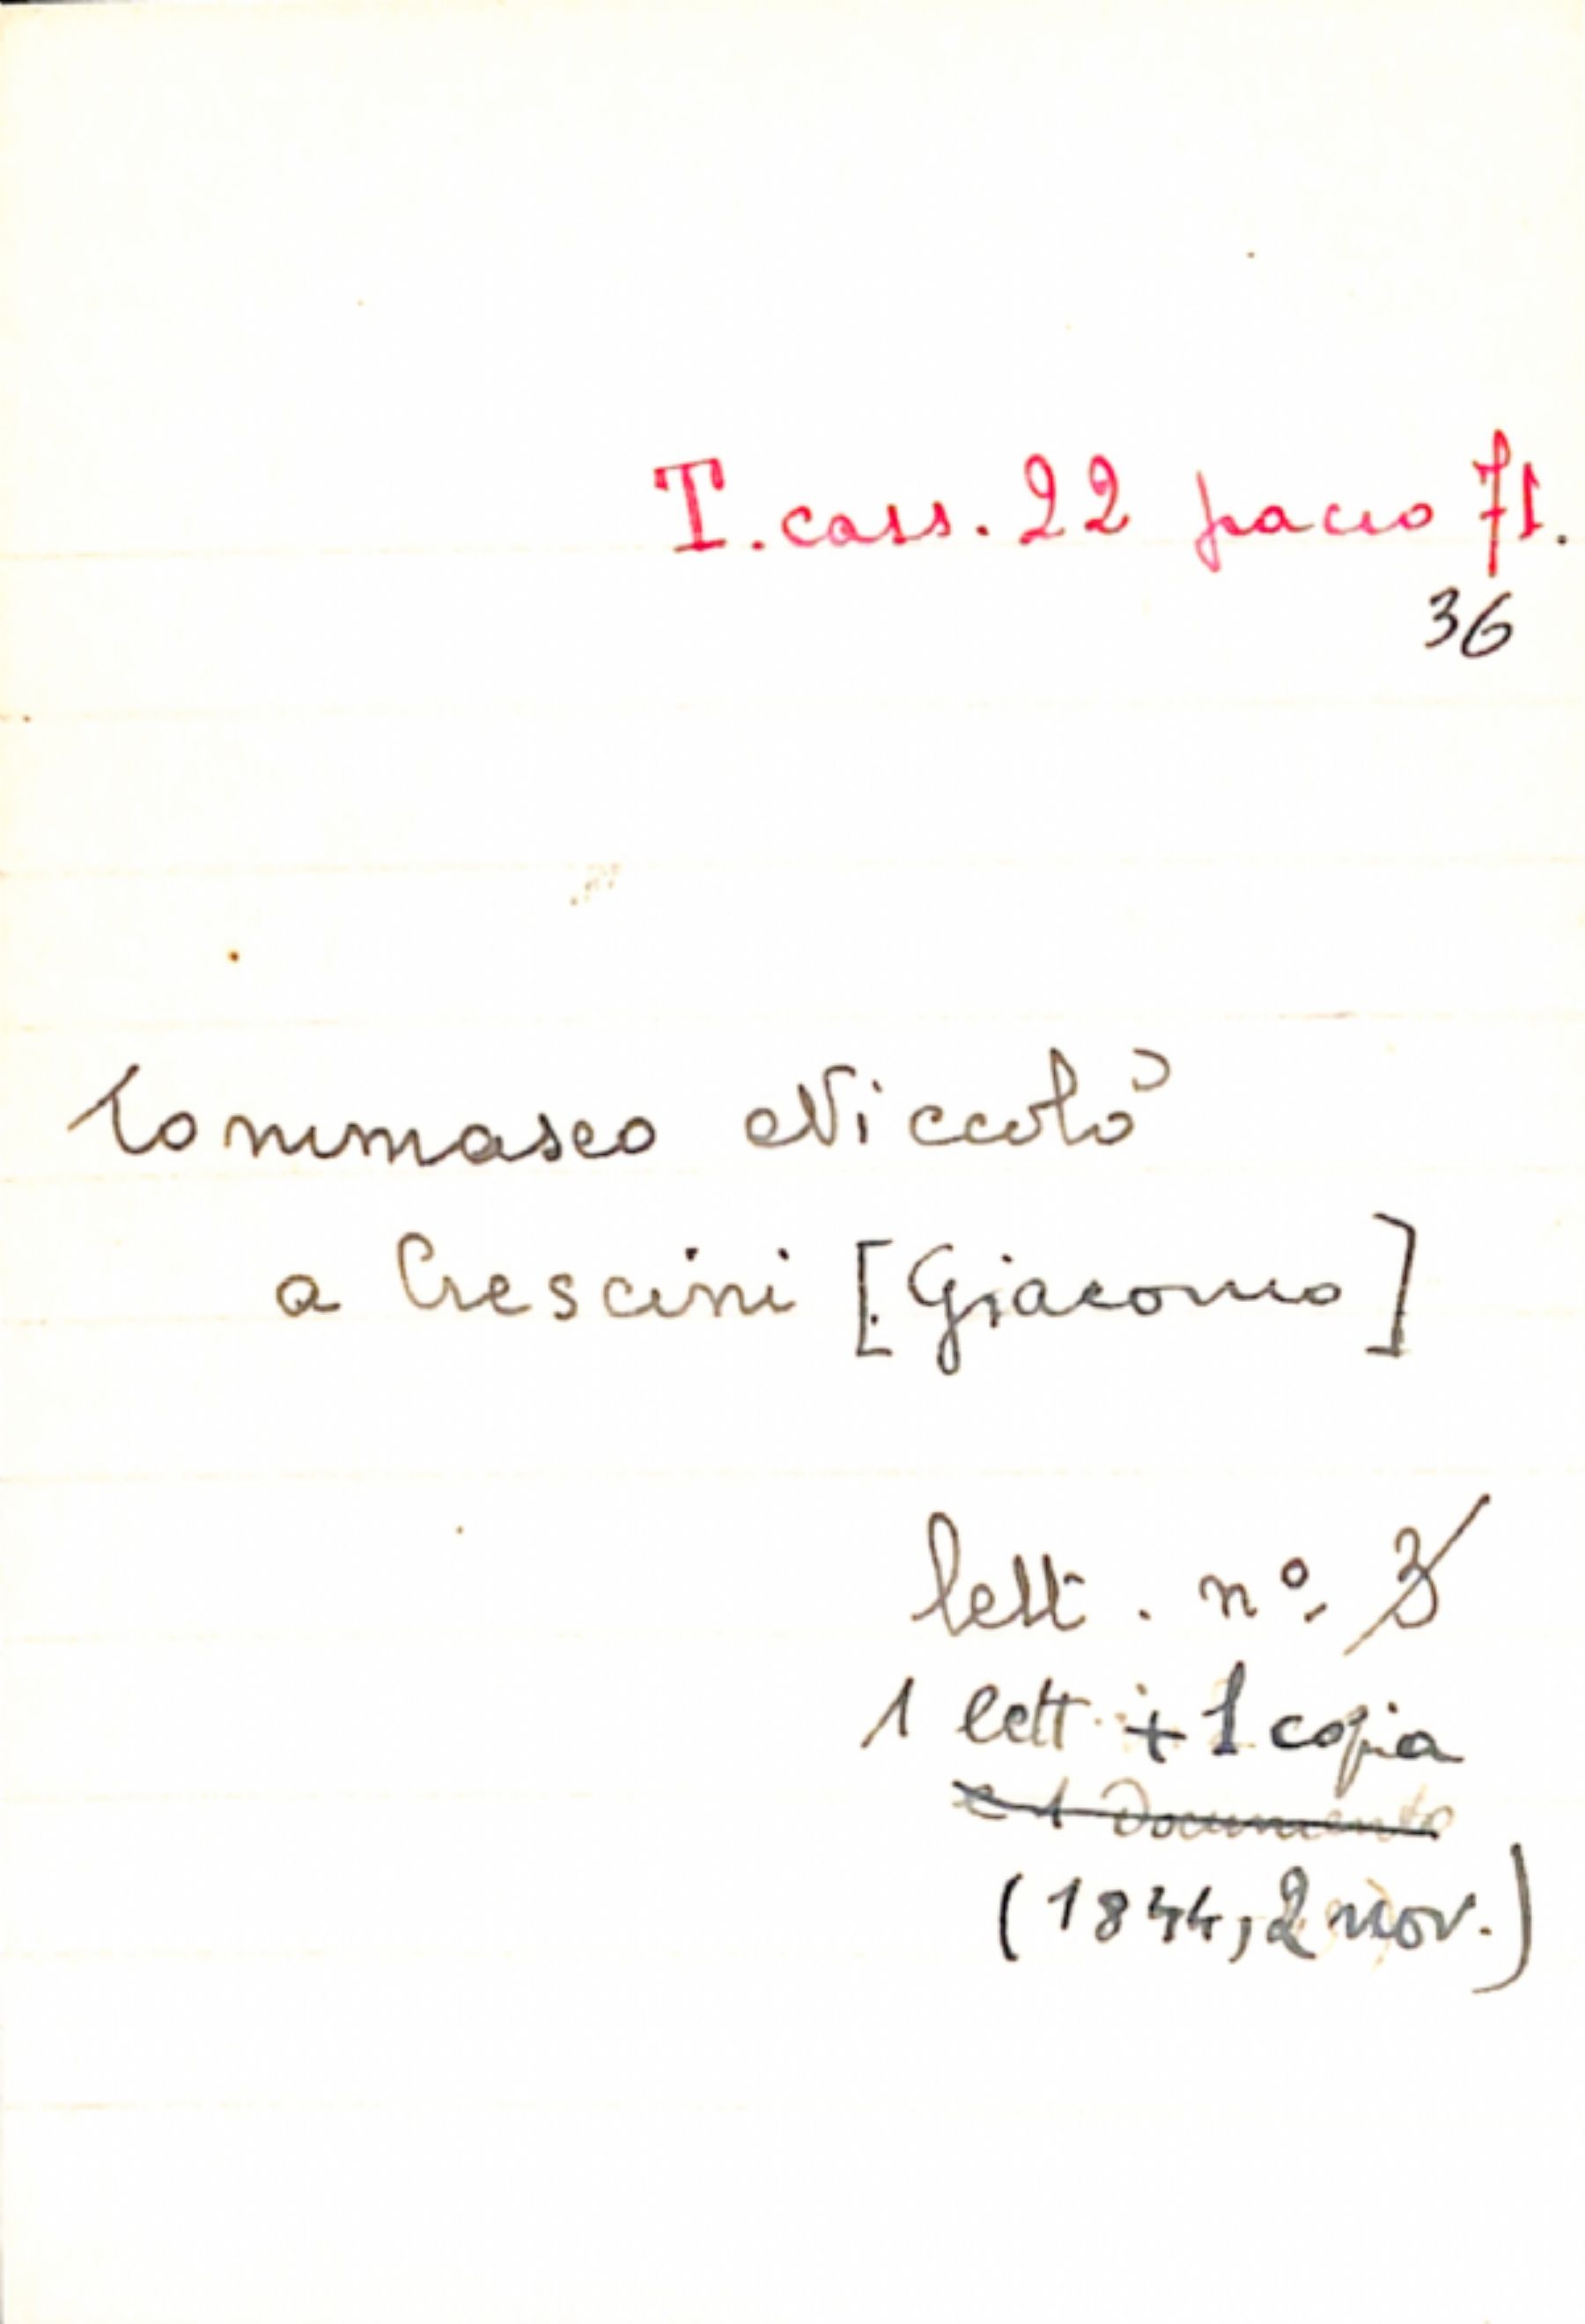 T. cass. 22 pacco 71.
36
Tommaseo Niccolò
a Crescini [Giacomo]
lett. nº. 3
1 lett. + 1 copia
e 1 Documento
(1844, 2 nov.)